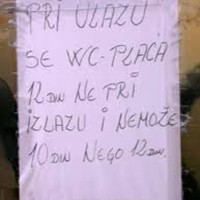 PRI ULAZU
SE WC-PLAĆA
12 DIN NE PRI
IZLAZU I NEMOŽE
10 DIN NEGO 12 DIN.